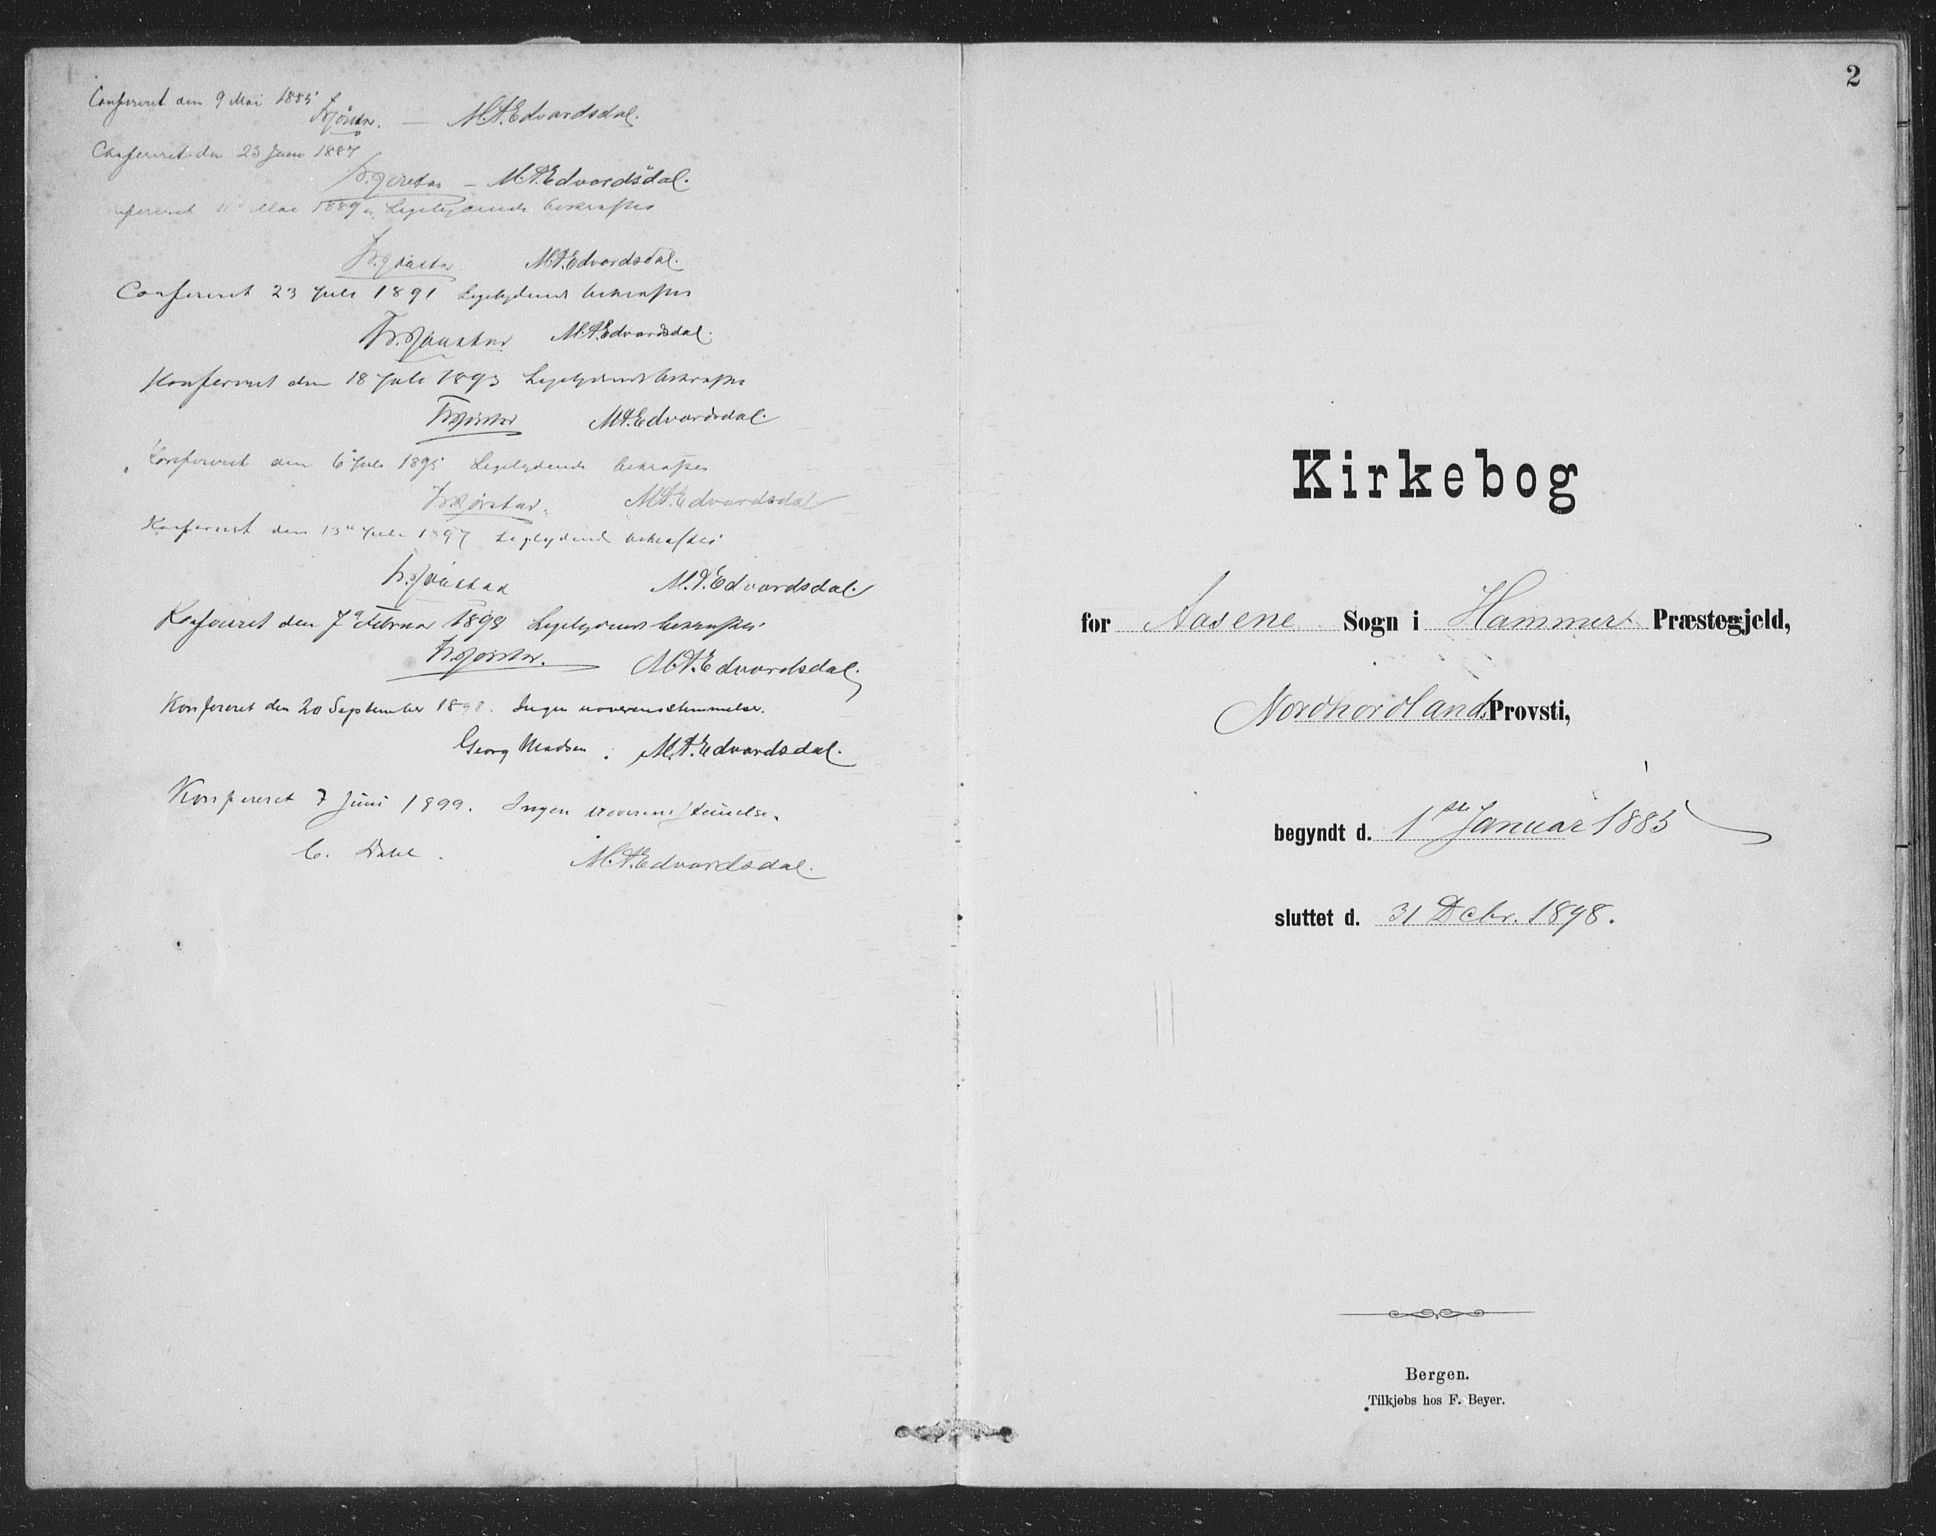 Confereret den 9 Mai 1885
M.A.Edvardsdal.
Conferert den 23 Juni 1887
M.A.Edvardsdal.
Mai 1889 Ligelydende bekræftes
M.A.Edvardsdal.
Confereret 23 Juli 1891 Ligelydende bekræftes
M.A.Edvardsdal.
Konfereret den 18 Juli 1893 Ligelydende bekræftes
M.A.Edvardsdal.
Konfereret den 6 Juli 1895 Ligelydende bekræftes
M.A.Edvardsdal
Konfereret den 13 Juli 1897 Ligelydende bekræftes
M.A.Edvardsdal.
Konfereret den 7 Februar 1898 Ligelydende bekræftes
M.A.Edvardsdal.
Konfereret den 20 September 1898. Ingen uoverensstemmelser.
Georg Madsen M.A.Edvardsdal.
Konfereret 7 Juni 1899. Ingen uoverensstemmelse.
C. Dahl. M.A.Edvardsdal.
2
Kirkebog
for Aasene Sogn i Hammers Præstegjeld,
Nordhordlands Provsti,
begyndt d. 1ste Januar 1885
sluttet d. 31 Decbr. 1898.
Bergen.
Tilkjøbs hos F. Beyer.